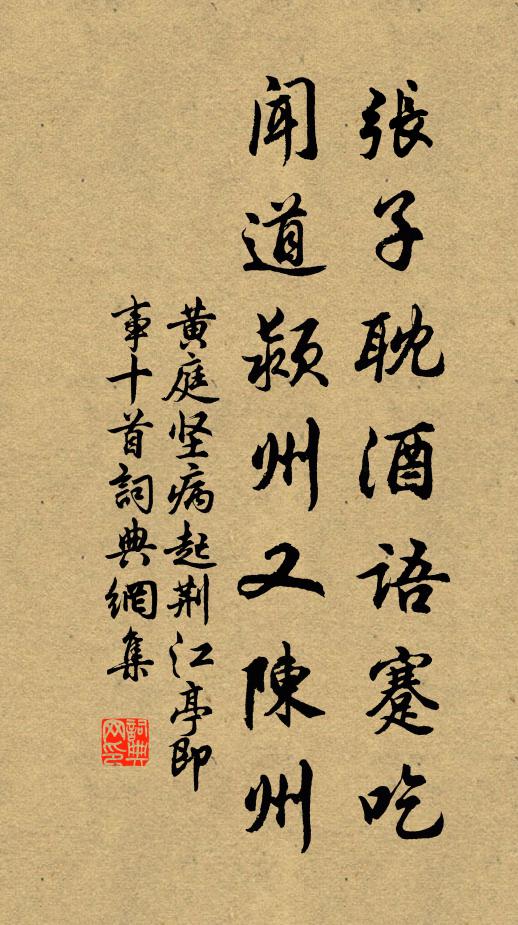 張子耽酒語蹇吃
闻道颍州又陳州
黄庭坚病起荆江亭即
事十首詞典網集
詞典
网印